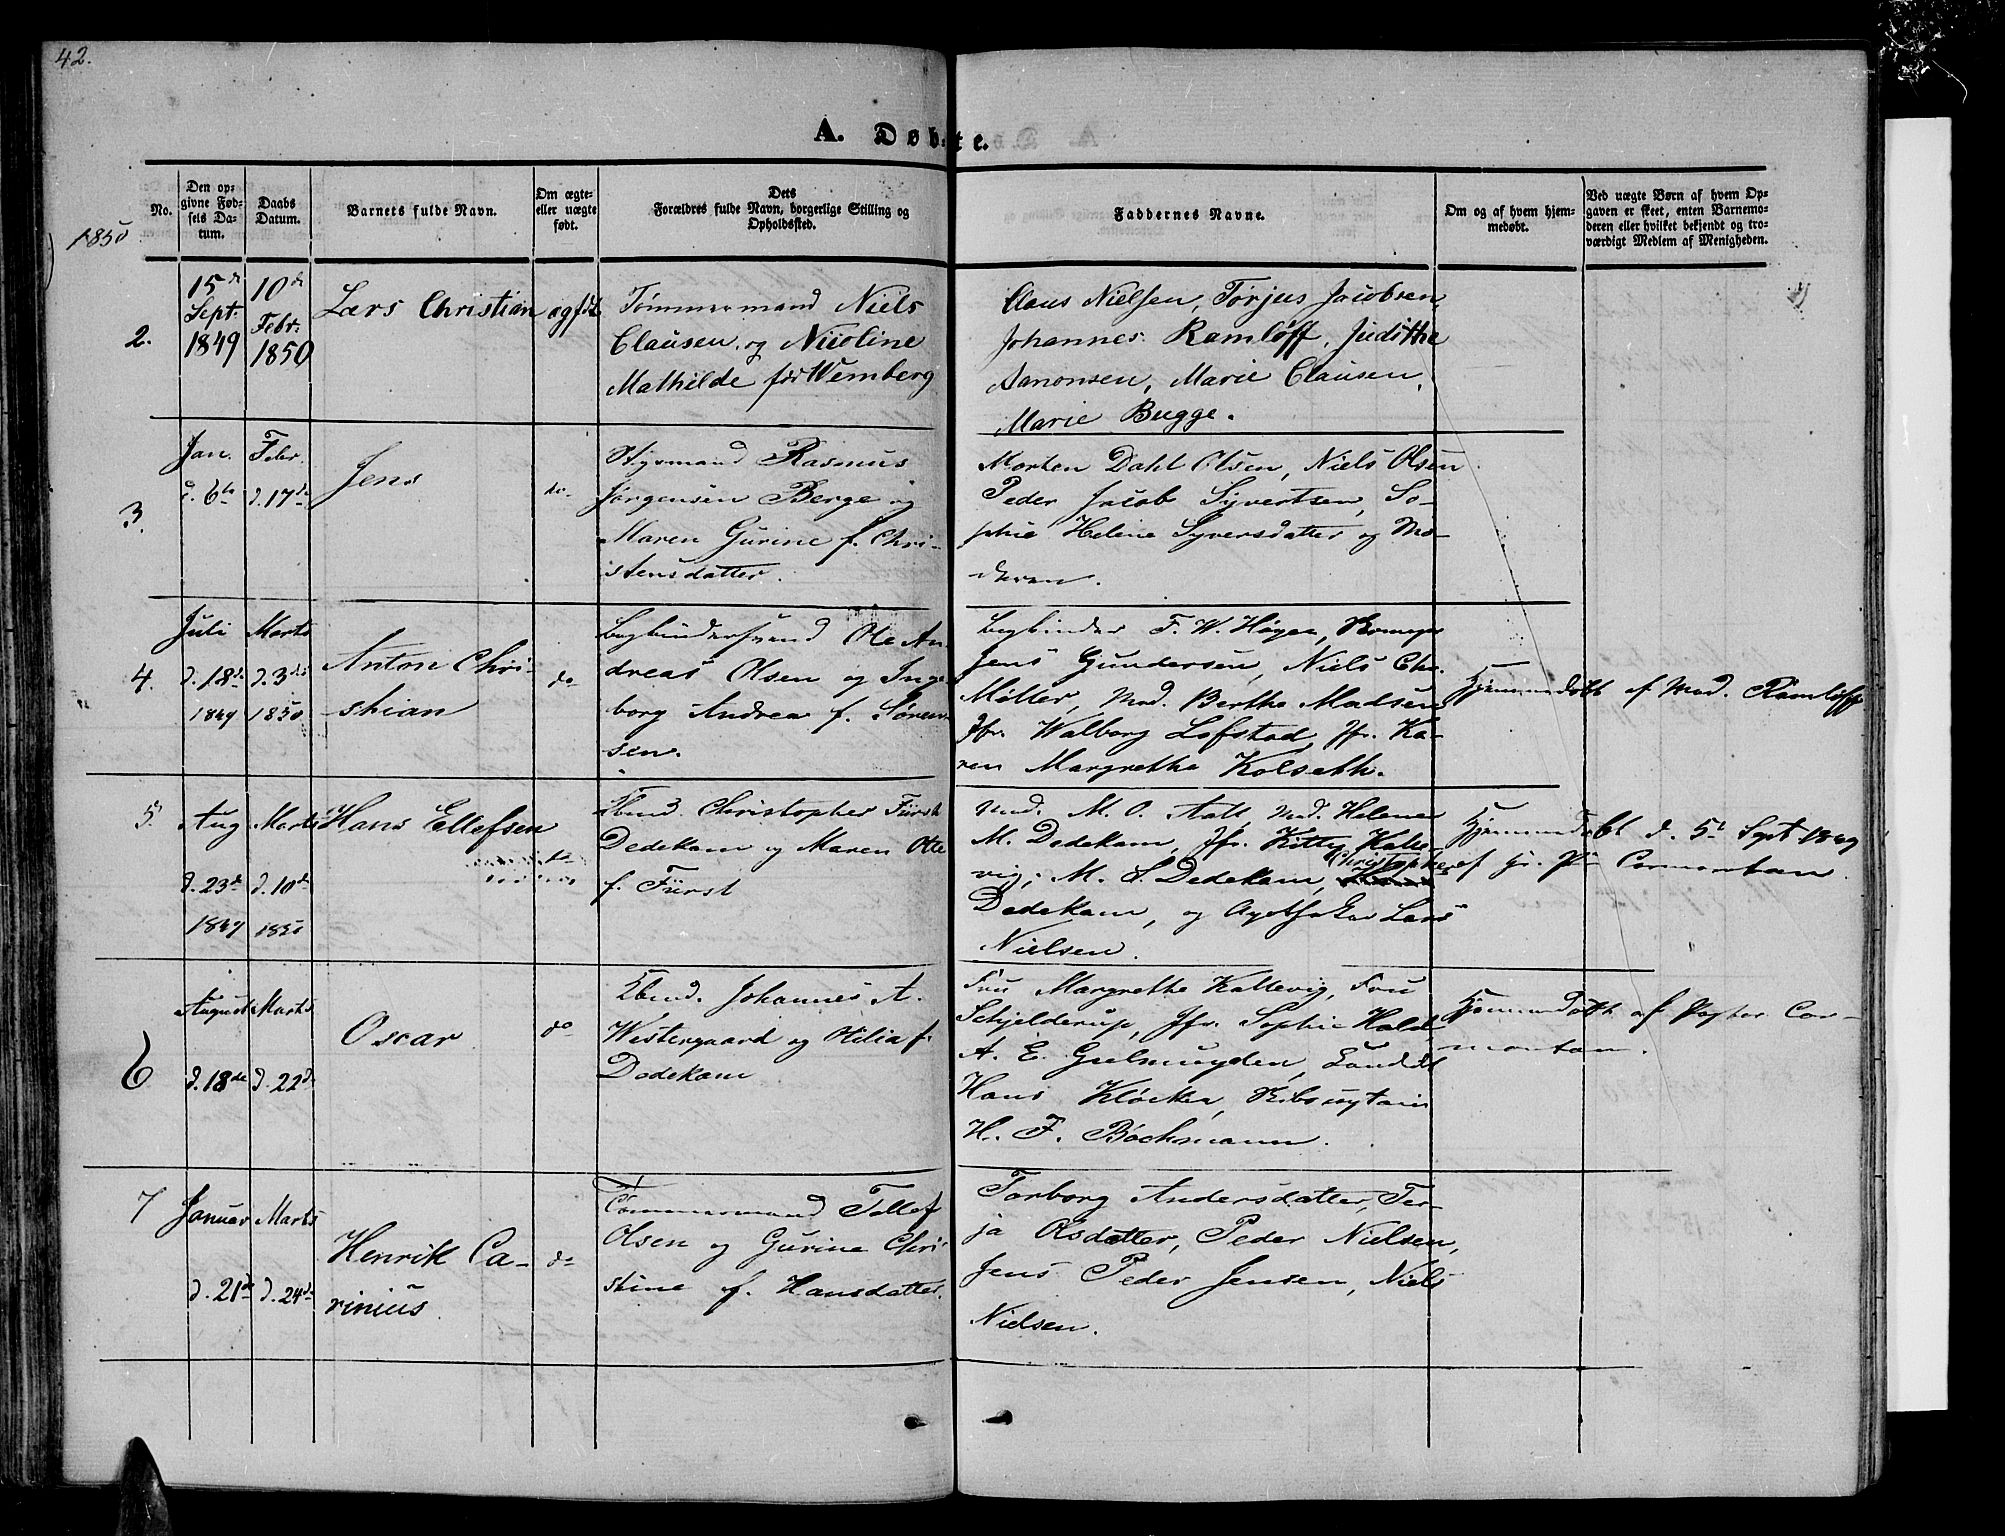 42.
A. Døbte.
1850
No.
Den op=
givne Fød=
sels Da=
tum.
Daabs
Datum.
Barnets fulde Navn.
Om ægte=
eller uægte
født.
Dets
Forældres fulde Navn, borgerlige Stilling og
Opholdssted.
Faddernes Navne.
Om og af hvem hjem=
medøbt.
Ved uægte Børn af hvem Op=
gaven er skeet, enten Barnemo=
deren eller hvilket bekjendt og tro=
værdigt Medlem af Menigheden.
2.
15de
Sept.
1849
10de
Febr.
1850
Lars Christian
ægfdt
Tømmermand Niels
Clausen og Nicoline
Mathilde fød Wemberg
Claus Nielsen, Torjus Jacobsen,
Johannes Ramløff, Judithe
Aanonsen, Marie Clausen,
Marie Bugge.
3.
Jan.
d. 6te
Febr.
d. 17de
Jens
do
Rasmus
Jørgensen Berge og
Maren Gurine f. Chri-
stensdatter.
Morten Dahl Olsen, Niels Olsen
Peder Jacob Syvertsen, So-
phie Helene Syversdatter og Mo-
deren.
4.
Juli
d. 18de
1849
Marts
d. 3die
1850
Anton Chri-
stian
do
Bogbindersvend Ole An
dreas Olsen og Inge
borg Andrea f. Søren
sen.
Bogbinder F. W. Høyer,
Jens Gundersen, Niels Chr.
Møller, Mad. Berthe Madsen
Jfr. Walborg Lofstad, Jfr. Ka-
ren Margrethe Kolseth.
Hjemmedøbt af Mad. Ramløff
5.
Aug
d. 23de
1849
Marts
d. 10de
1850
Hans Ellefsen
do
Kbmd. Christopher Fürst
Dedekam og Maren Otte
f. Fürst
Mad. M. O. Aall, Mad. Helene
M. Dedekam, Jfr. Kitty Kalle-
vig, M. S. Dedekam, Christopher
Dedekam, og Apotheker Lars
Nielsen.
Hjemmedøbt d. 5t Sept 1849
af Hr. Pr. Cormontan.
6
August
d. 18de
Marts
d. 22de
Oscar
do
Kbmd. Johannes A.
Westergaard og Hilia f.
Dedekam
Fru Margrethe Kallevig, Fru
Schjelderup, Jfr. Sophie Hald,
A. E. Gulmuyden,
Hans Klöcker, Skibscaptain
H. F. Bochmann.
Hjemmedøbt af Pastor Cor-
montan.
7
Januar
d. 21de
Marts
d. 24de
Henrik Ca-
rinius.
do
Tømmermand Tellef
Olsen og Gurine Chri
stine f. Hansdatter.
Torborg Andersdatter, Ter-
ja Olsdatter, Peder Nielsen,
Jens Peder Jensen, Niels
Nielsen.